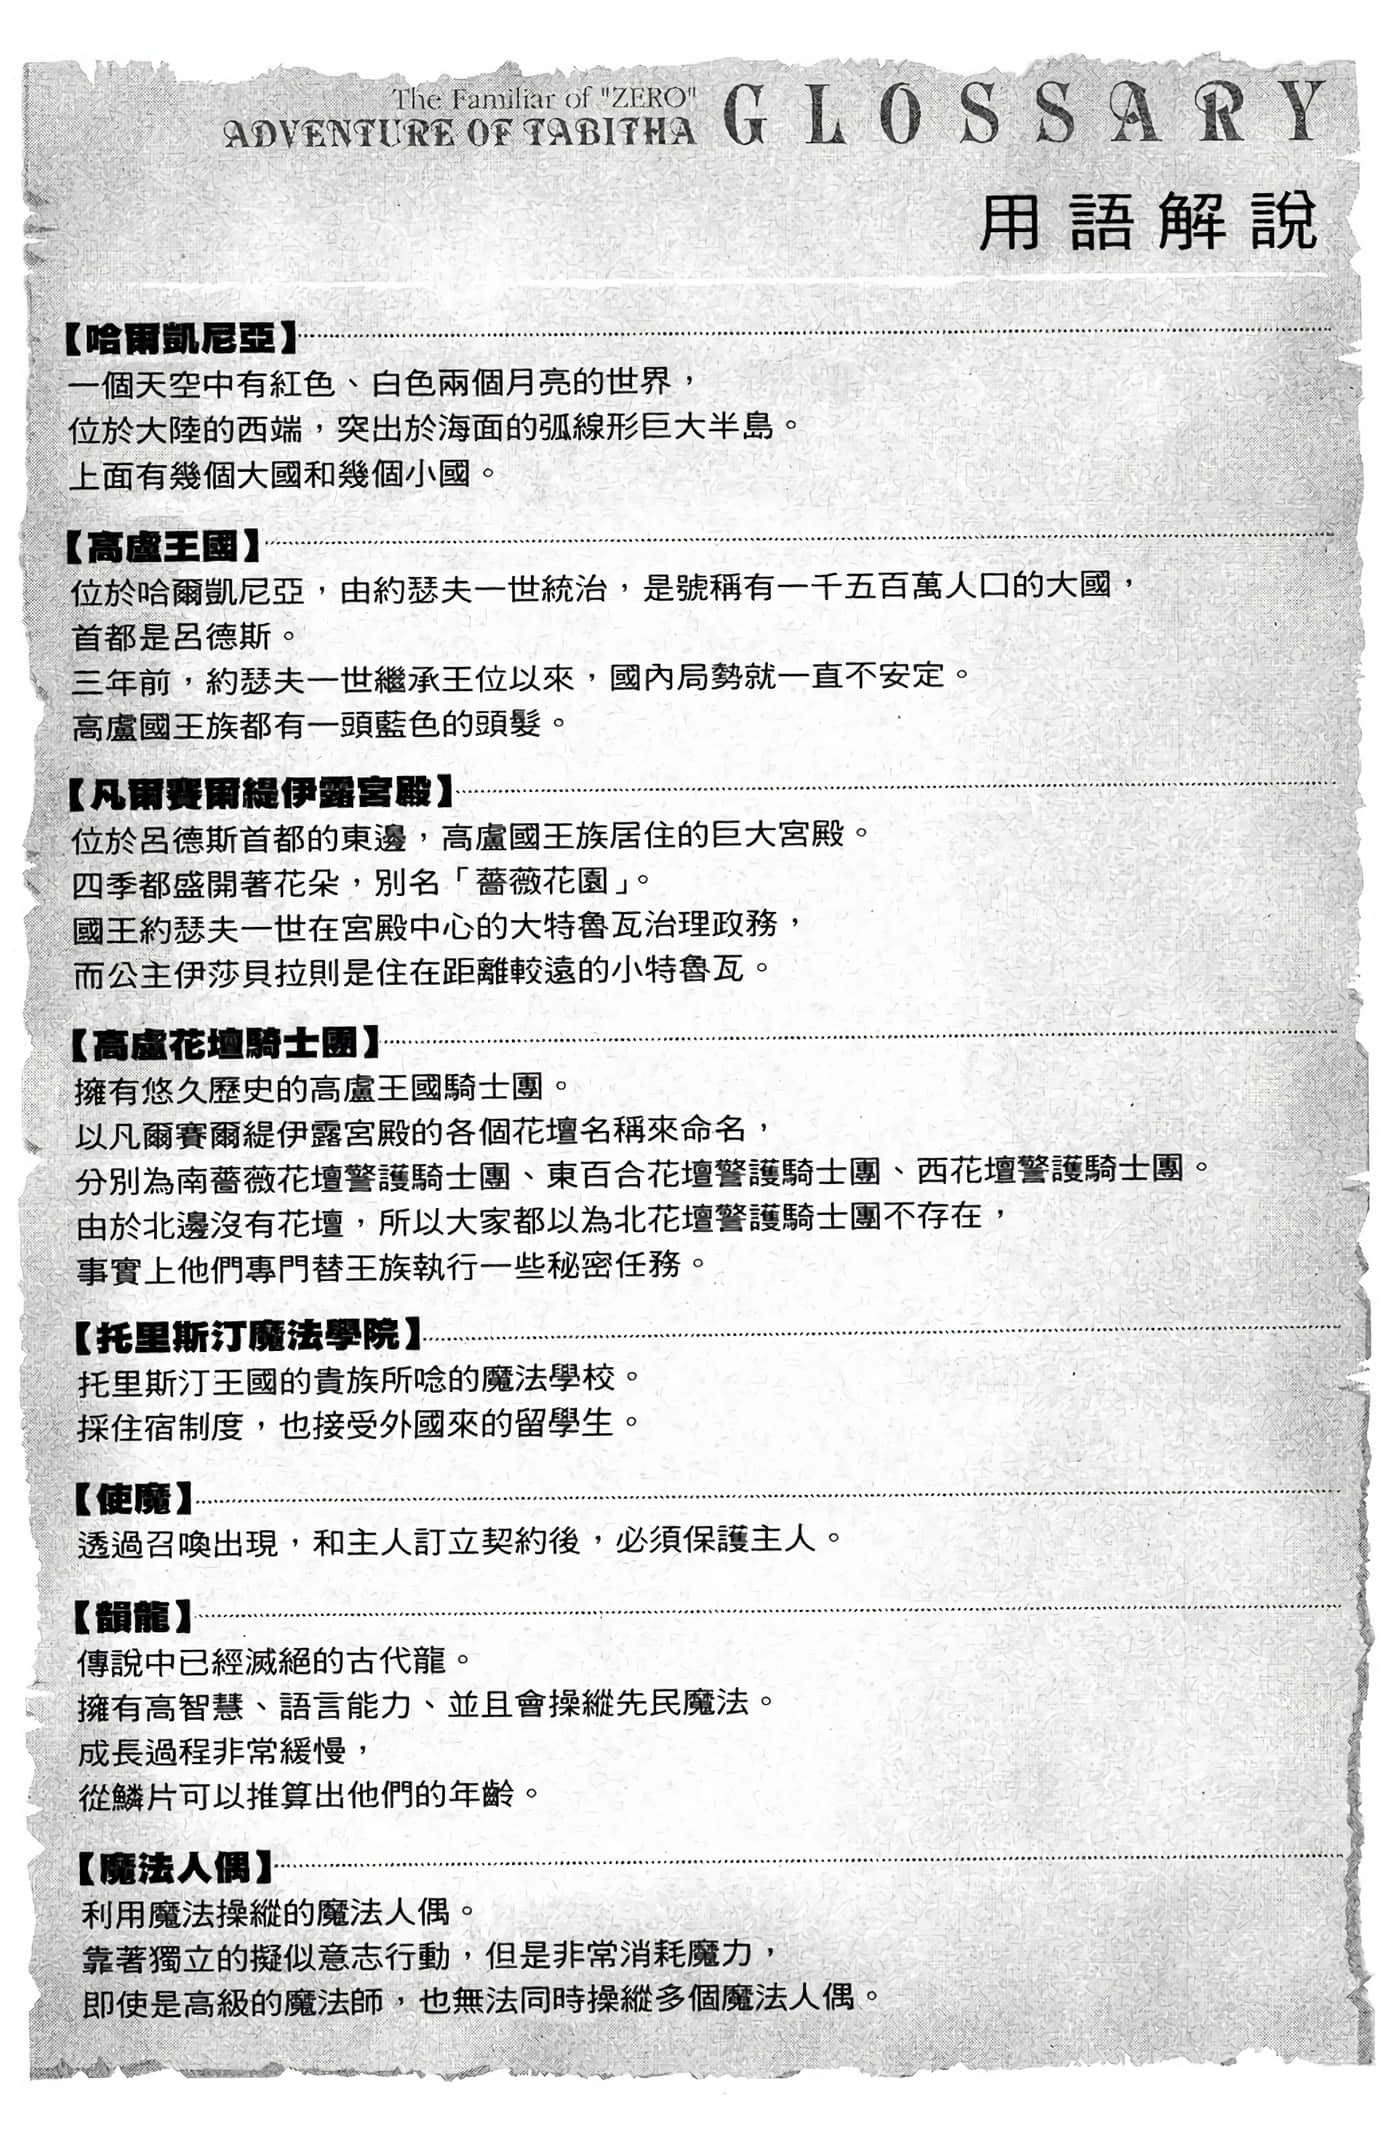 The Familiar of "ZERO"
ADVENTURE OF TABITHA GLOSSARY
用語解說
【哈爾凱尼亞】
一個天空中有紅色、白色兩個月亮的世界，
位於大陸的西端，突出於海面的弧線形巨大半島。
上面有幾個大國和幾個小國。
【高盧王國】
位於哈爾凱尼亞，由約瑟夫一世統治，是號稱有一千五百萬人口的大國，
首都是呂德斯。
三年前，約瑟夫一世繼承王位以來，國內局勢就一直不安定。
高盧國王族都有一頭藍色的頭髮。
【凡爾賽爾緹伊露宮殿】
位於呂德斯首都的東邊，高盧國王族居住的巨大宮殿。
四季都盛開著花朵，別名「薔薇花園」。
國王約瑟夫一世在宮殿中心的大特魯瓦治理政務，
而公主伊莎貝拉則是住在距離較遠的小特魯瓦。
【高盧花壇騎士團】
擁有悠久歷史的高盧王國騎士團。
以凡爾賽爾緹伊露宮殿的各個花壇名稱來命名，
分別為南薔薇花壇警護騎士團、東百合花壇警護騎士團、西花壇警護騎士團。
由於北邊沒有花壇，所以大家都以為北花壇警護騎士團不存在，
事實上他們專門替王族執行一些秘密任務。
【托里斯汀魔法學院】
托里斯汀王國的貴族所唸的魔法學校。
採住宿制度，也接受外國來的留學生。
【使魔】
透過召喚出現，和主人訂立契約後，必須保護主人。
【韻龍】
傳說中已經滅絕的古代龍。
擁有高智慧、語言能力、並且會操縱先民魔法。
成長過程非常緩慢，
從鱗片可以推算出他們的年齡。
【魔法人偶】
利用魔法操縱的魔法人偶。
靠著獨立的擬似意志行動，但是非常消耗魔力，
即使是高級的魔法師，也無法同時操縱多個魔法人偶。